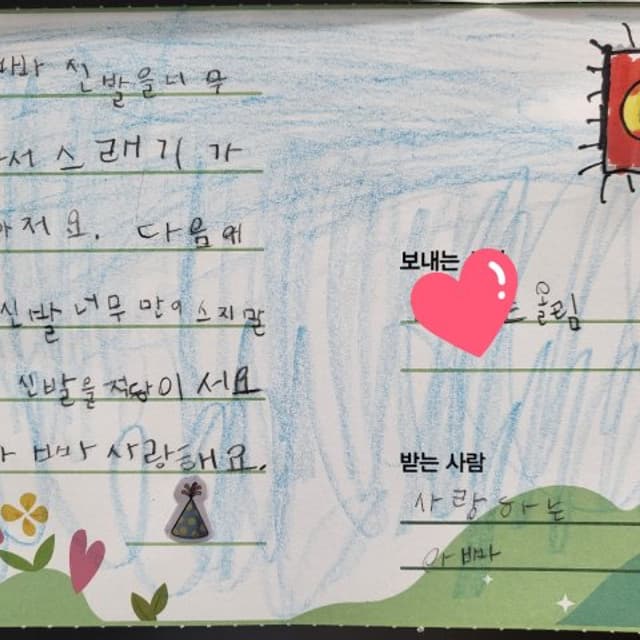 빠 신발을너무
서 스래기가
저요. 다음에
신발 너무 만이 스지말
신발을 적당이 서요
빠 사랑해요.
보내는
드 올림
받는 사람
사랑하는
아빠